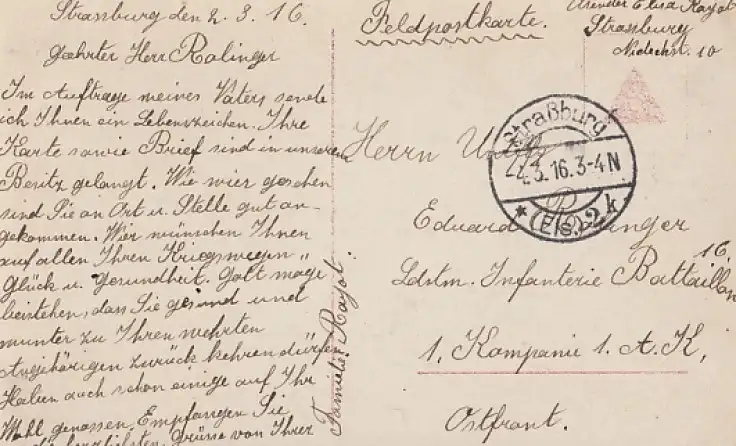 Strassburg den 2. 3. 16.
geehrter Herr Ralinger
Im Auftrage meines Vaters sende
ich Ihnen ein Lebenszeichen. Ihre
Karte sowie Brief sind in unseren
Besitz gelangt. Wie wier gesehen
sind Sie an Ort u. Stelle gut an-
gekommen. Wier wünschen Ihnen
auf allen Ihren Kriegswegen
Glück u. Gesundheit. Gott möge
beistehen, dass Sie gesund und
munter zu Ihren wehrten
Angehörigen zurück kehren dürfen
Haben auch schon einige auf Ihr
Wohl genossen. Empfangen Sie
Grüsse von Ihrer
Familie Rayot.
Feldpostkarte.
Elisa Rayot
Strassburg
10
Straßburg
3.16.3-4N
* (Els.) 2 k
Herrn
Eduard
Ldstm. Infanterie Battaillon
16,
1. Kompanie 1. A. K,
Ostfront.